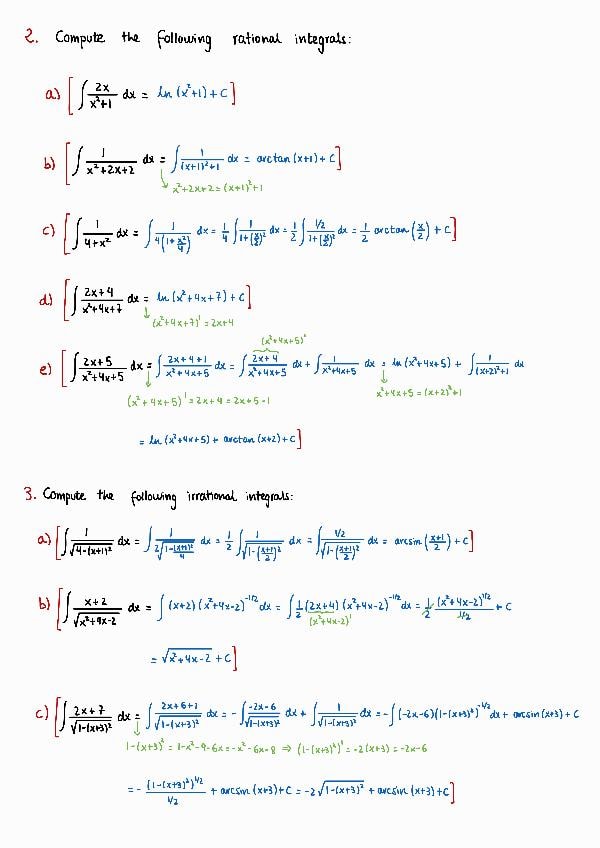 2. Compute the following rational integrals:
a) [∫ 2x/(x²+1) dx = ln (x²+1) + C]
b) [∫ 1/(x²+2x+2) dx = ∫ 1/((x+1)²+1) dx = arctan (x+1) + C]
↳ x²+2x+2 = (x+1)²+1
c) [∫ 1/(4+x²) dx = ∫ 1/(4(1+x²/4)) dx = 1/4 ∫ 1/(1+(x/2)²) dx = 1/2 ∫ (1/2)/(1+(x/2)²) dx = 1/2 arctan (x/2) + C]
d) [∫ (2x+4)/(x²+4x+7) dx = ln (x²+4x+7) + C]
↓ (x²+4x+7)' = 2x+4
(x²+4x+5)'
e) [∫ (2x+5)/(x²+4x+5) dx = ∫ (2x+4+1)/(x²+4x+5) dx = ∫ (2x+4)/(x²+4x+5) dx + ∫ 1/(x²+4x+5) dx = ln (x²+4x+5) + ∫ 1/((x+2)²+1) dx
(x²+4x+5)' = 2x+4 = 2x+5-1 x²+4x+5 = (x+2)²+1
= ln (x²+4x+5) + arctan (x+2) + C]
3. Compute the following irrational integrals:
a) [∫ 1/√(4-(x+1)²) dx = ∫ 1/(2√(1-(x+1)²/4)) dx = 1/2 ∫ 1/√(1-((x+1)/2)²) dx = ∫ (1/2)/√(1-((x+1)/2)²) dx = arcsin ((x+1)/2) + C]
b) [∫ (x+2)/√(x²+4x-2) dx = ∫ (x+2) (x²+4x-2)^(-1/2) dx = ∫ 1/2 (2x+4) (x²+4x-2)^(-1/2) dx = 1/2 (x²+4x-2)^(1/2)/(1/2) + C
(x²+4x-2)'
= √(x²+4x-2) + C]
c) [∫ (2x+7)/√(1-(x+3)²) dx = ∫ (2x+6+1)/√(1-(x+3)²) dx = -∫ (-2x-6)/√(1-(x+3)²) dx + ∫ 1/√(1-(x+3)²) dx = -∫ (-2x-6)(1-(x+3)²)^(-1/2) dx + arcsin (x+3) + C
1-(x+3)² = 1-x²-9-6x = -x²-6x-8 ⇒ (1-(x+3)²)' = -2(x+3) = -2x-6
= - (1-(x+3)²)^(1/2)/(1/2) + arcsin (x+3) + C = -2√(1-(x+3)²) + arcsin (x+3) + C]